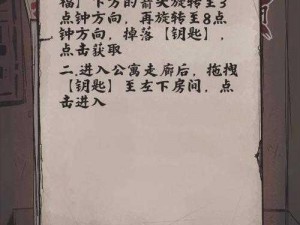 福】下方的箭头旋转至3
点钟方向，再旋转至8点
钟方向，掉落【钥匙】，
点击获取
二.进入公寓走廊后，拖拽
【钥匙】至左下房间，点
击进入